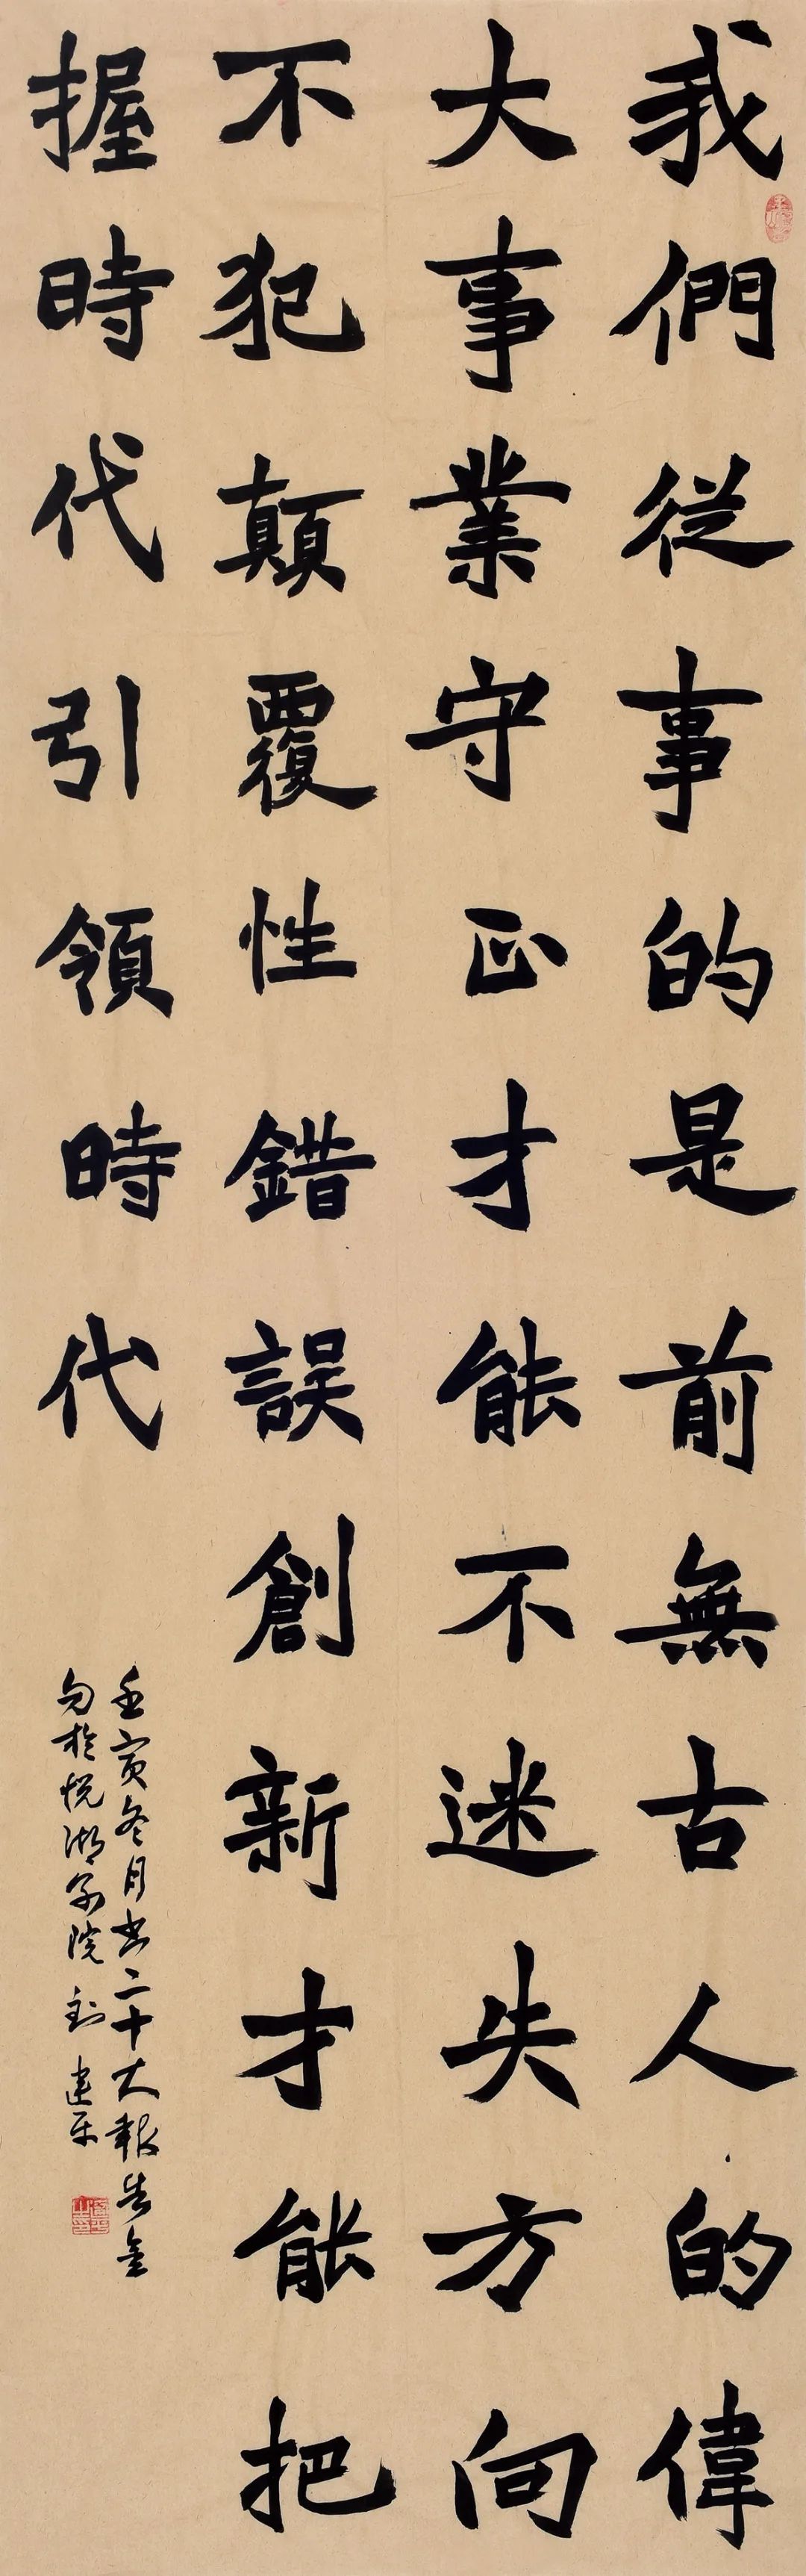 我們從事的是前無古人的偉
大事業守正才能不迷失方向
不犯顛覆性錯誤創新才能把
握時代引領時代
壬寅冬月書二十大報告金
句於悅湖書院 劉建平